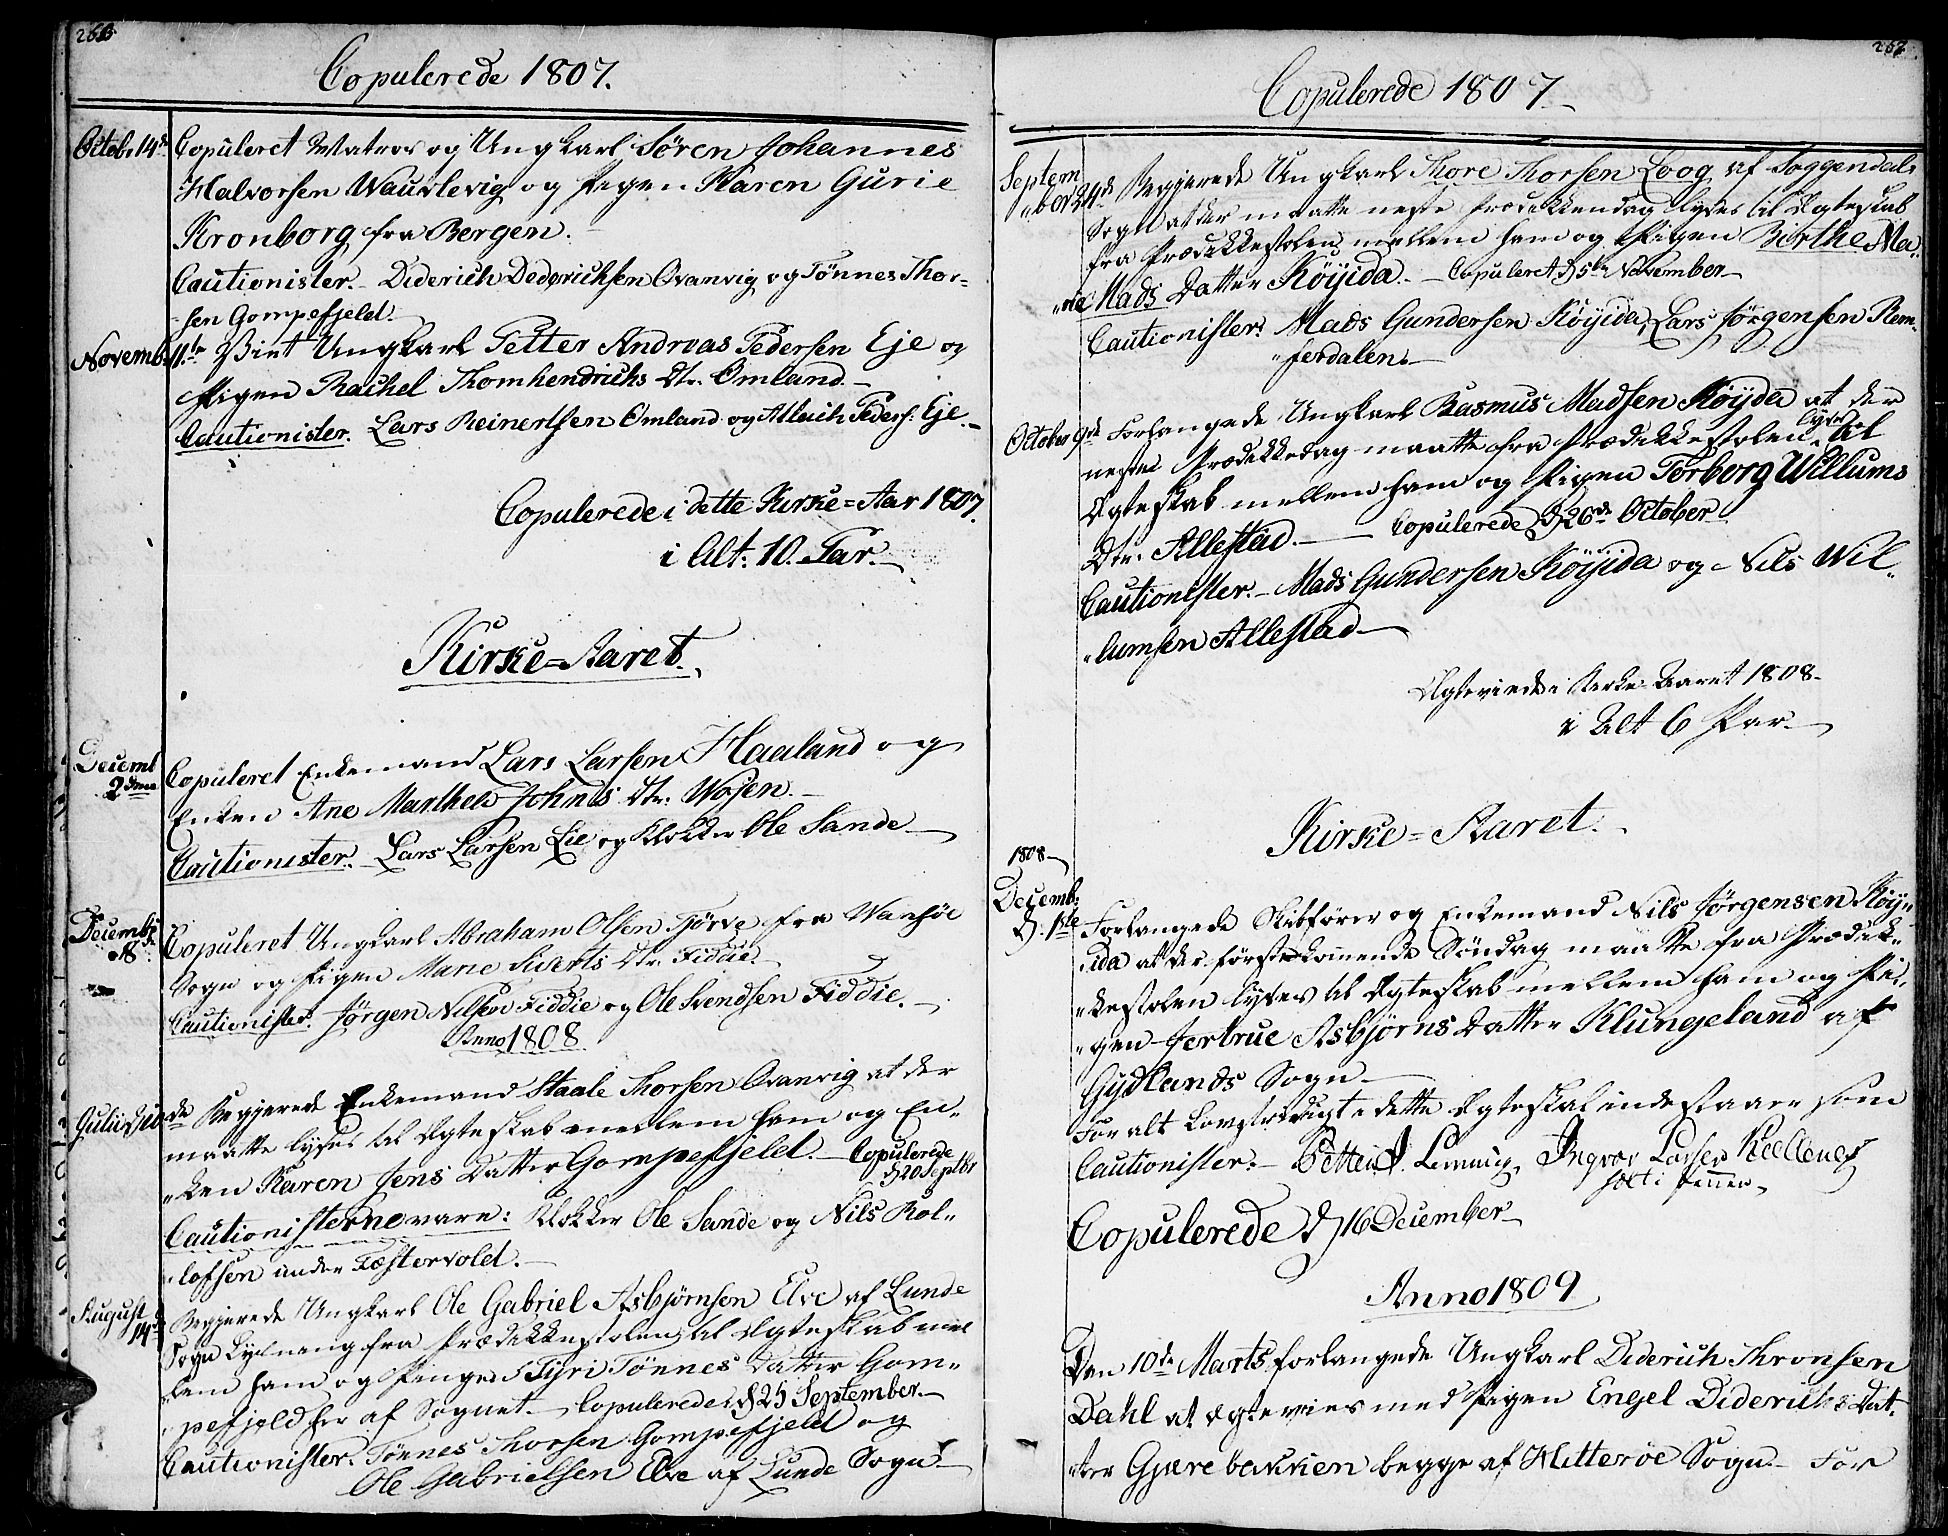 Copulerede 1807.
Octobr 14de Copuleret Matros og Ungkarl Sören Johannes
Halvorsen Waurlevig og Pigen Karen Gurie
Kronborg fra Bergen.
Cautionister. Diderich Dederichsen Ovanvig og Tönnes Thor=
sen Gompefjeld.
Novembr 11te Viet Ungkarl Petter Andreas Pedersen Eje og
Pigen Rachel Thomhendrichs Dtr. Omland.
Cautionister. Lars Reinertsen Omland og Atlach Peders: Eje.
Copulerede i dette Kirke=Aar 1807.
i Alt: 10. Par.
Kirke=Aaret.
Decembr
2den Copuleret Enkemand Lars Larsen Haaland og
Enken Ane Marthe Johns Dtr: Wosen.
Cautionister. Lars Larsen Lie og Klokker Ole Sande
Decembr
18de Copuleret Ungkarl Abraham Olsen Tjörve fra Wansöe
Sogn og Pigen Marie Siverts Dtr. Fiddie.
Cautionister. Jörgen Nilsen Fiddie og Ole Svendsen Fiddie.
Anno 1808
Julii D 10de Begjerede Enkemand Staale Thorsen Ovanvig at der
maatte lyses til Ægteskab mellem ham og En„
„ken Karen Jens Datter Gompefjeld. Copulerede
D 20 Septbr
Cautionisterne vare: Klokker Ole Sande og Nils Rol„
„lofsen under Fæstervold.
August
14de Begjerede Ungkarl Ole Gabriel Asbjörnsen Elve af Lunde
Sogn Lysning fra Prædikkestolen til Ægteskab mel
lem ham og Pingen Tyri Tönnes Datter Gom„
„pefjeld her af Sognet. Copulerede D 25 September.
Cautionister. Tönnes Thorsen Gompefjeld og
Ole Gabrielsen Elve af Lunde Sogn
Copulerede 1807.
Septem
„ber 24de Begjerede Ungkarl Thore Thorsen Loog af Soggendals
Sogn at der maatte neste Prædikkendag lyses til Ægteskab
fra Prædikkestolen mellem ham og Pigen Berthe Ma„
„rie Mads Datter Köyida. Copuleret D 5te November
Cautionister. Mads Gundersen Köyida, Lars Jörgensen Rem„
„ferdalen.
October 9de Forlangede Ungkarl Rasmus Madsen Köyda at der
neste Prædikkedag maatte fra Prædikkestolen lyses til
Ægteskab mellem ham og Pigen Torborg Willums
Dtr. Allestad. Copulerede D 26de October
Cautionister. Mads Gundersen Köyida og Nils Wil„
„lumsen Allestad
Ægteviede i Kirke-Aaret 1808
i Alt 6 Par.
Kirke=Aaret.
1808
Decemb:
D. 1ste Forlangede Skibförer og Enkemand Nils Jörgensen Köy„
„ida at der förstkommende Söndag maatte fra Prædik„
„kestolen lyses til Ægteskab mellem ham og Pi„
„gen Jertrue Asbjörns Datter Klungeland af
Gydlands Sogn
For alt Lovstridigt i dette Ægteskab indestaaer som
Cautionister. Petter J. Lennig, Ingvar Larsen
holt i Pennen
Copulerede D 16 December
Anno 1809
Den 10de Marts forlangede Ungkarl Diderich Thronsen
Dahl at ægtevies med Pigen Engel Diderichs Dat„
„ter Gjerebakken begge af Hitteröe Sogn. For